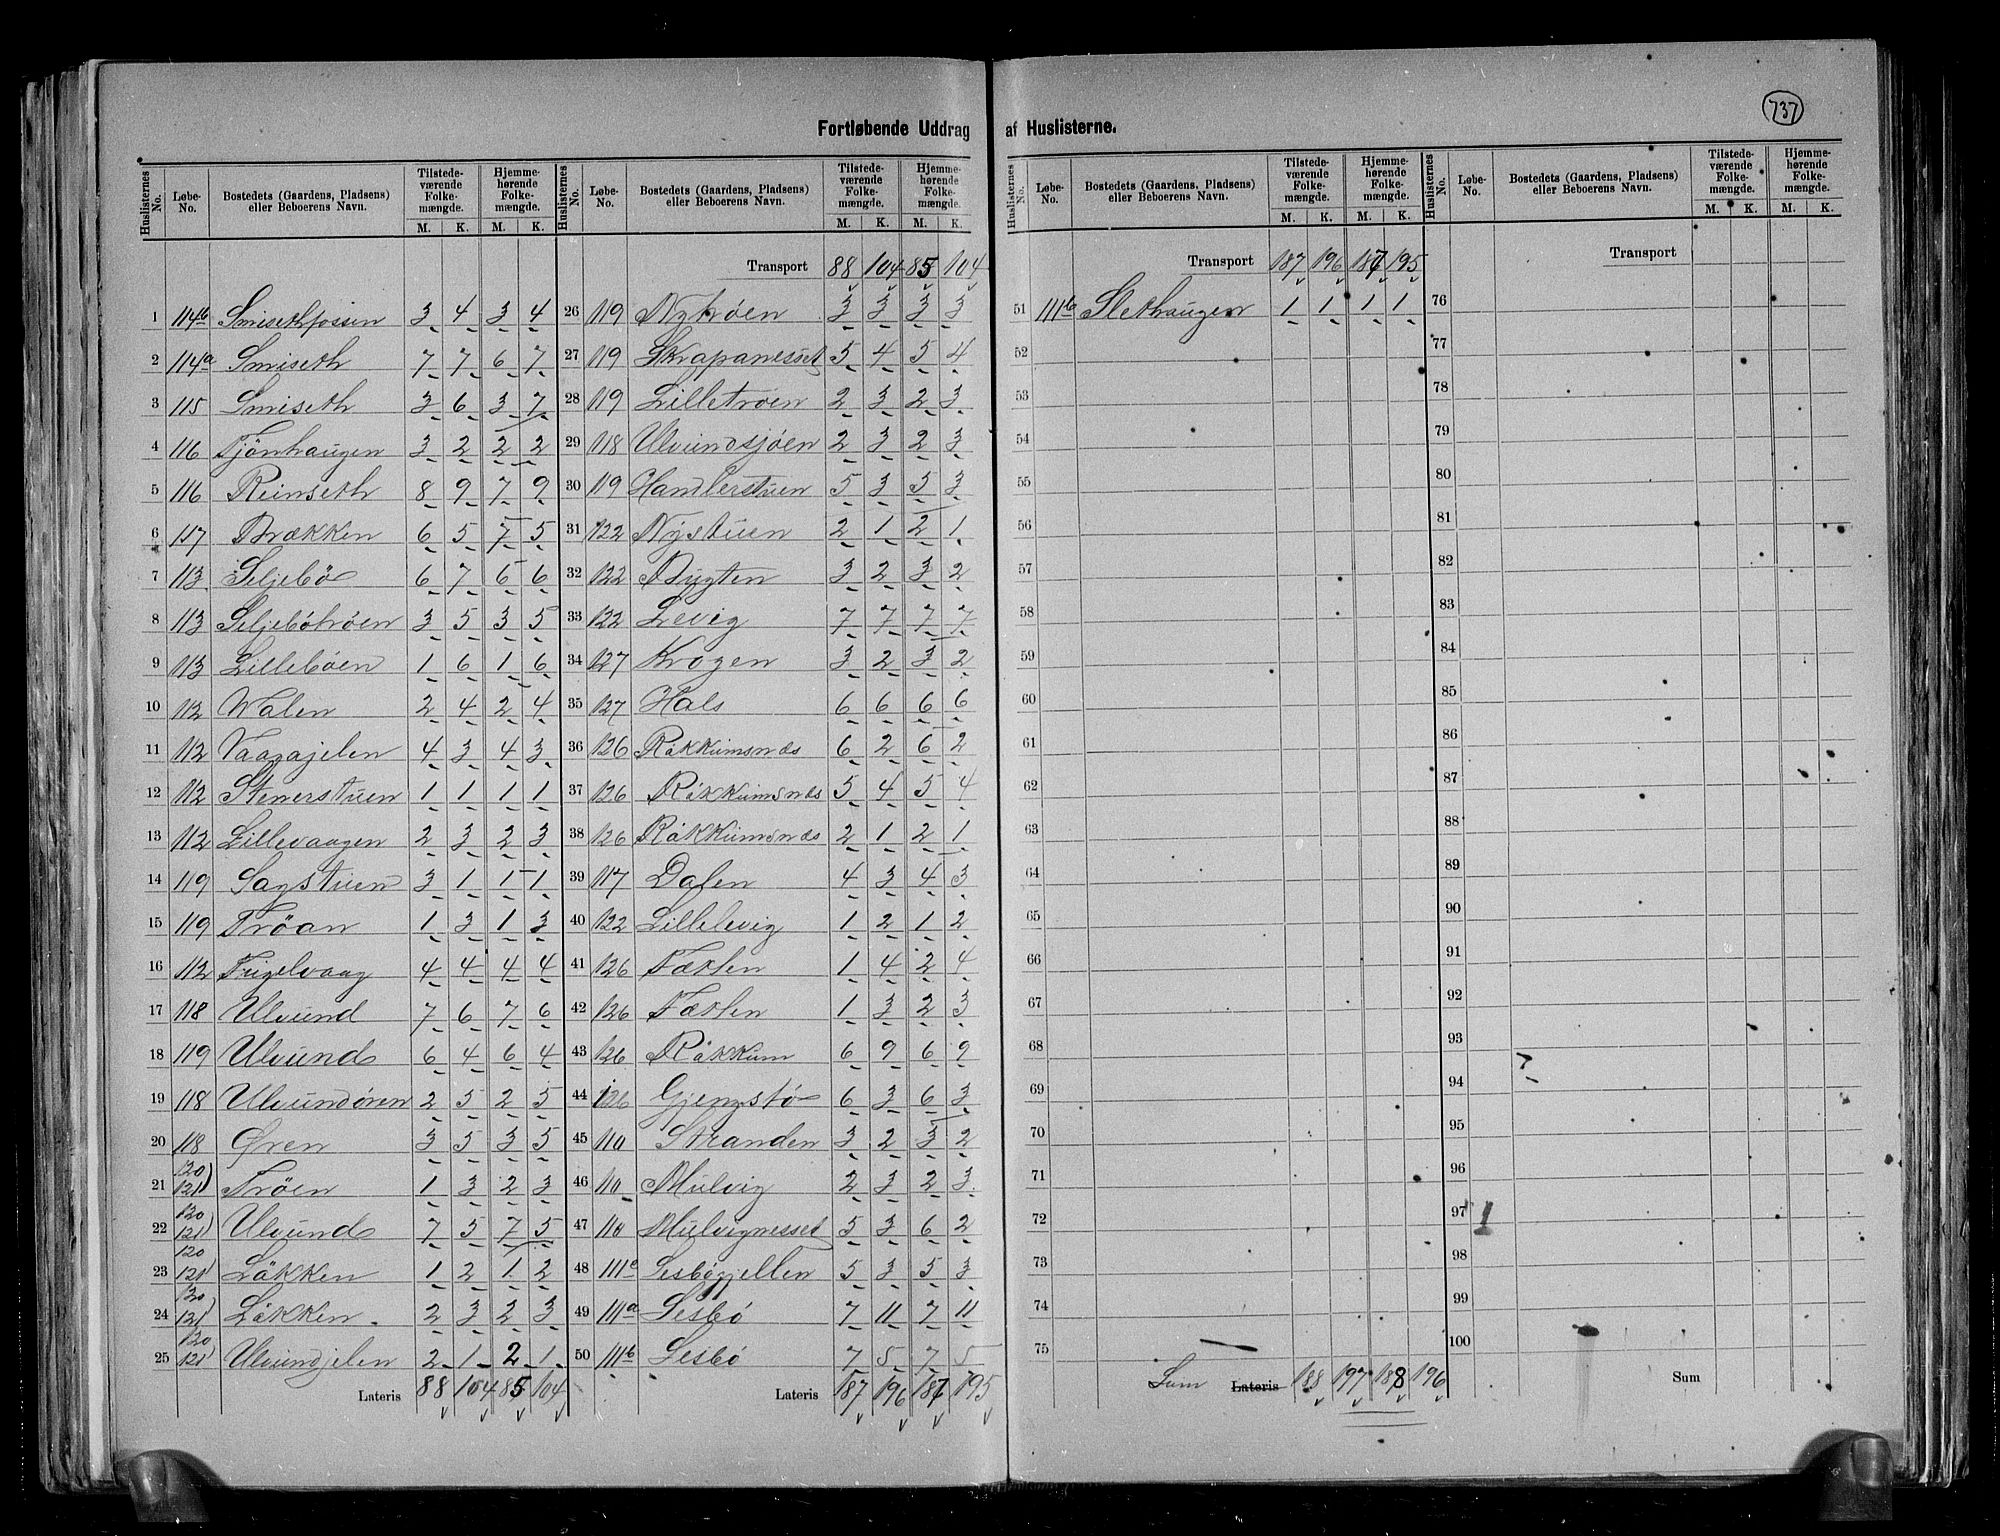 737
Fortløbende Uddrag af Huslisterne.
Huslisternes No. Løbe-No. Bostedets (Gaardens, Pladsens) eller Beboerens Navn. Tilstedeværende Folkemængde. M. K. Hjemmehørende Folkemængde. M. K.
1 114b Smisethfossen 3 4 3 4
2 114a Smiseth 7 7 6 7
3 115 Smiseth 3 6 3 7
4 116 Tjönhaugen 3 2 2 2
5 116 Reinseth 8 9 7 9
6 117 Brækken 6 5 7 5
7 113 Seljebö 6 7 6 6
8 113 Seljebötröen 3 5 3 5
9 113 Lilleböen 1 6 1 6
10 112 Walen 2 4 2 4
11 112 Vaagajelen 4 3 4 3
12 112 Stenerstuen 1 1 1 1
13 112 Lillevaagen 2 3 2 3
14 119 Sagstuen 3 1 1 1
15 119 Tröan 1 3 1 3
16 112 Fuglvaag 4 4 4 4
17 118 Ulvund 7 6 7 6
18 119 Ulvund 6 4 6 4
19 118 Ulvundören 2 5 2 5
20 118 Øren 3 5 3 5
21 120 121) Tröen 1 3 2 3
22 120 121) Ulvund 7 5 7 5
23 120 121) Läkken 1 2 1 2
24 120 121) Läkken 2 3 2 3
25 120 121) Ulvundjelen 2 1 2 1
Lateris 88 104 85 104
Huslisternes No. Løbe-No. Bostedets (Gaardens, Pladsens) eller Beboerens Navn. Tilstedeværende Folkemængde. M. K. Hjemmehørende Folkemængde. M. K.
Transport 88 104 85 104
26 119 Nytröen 3 3 3 3
27 119 Skrapanesset 5 4 5 4
28 119 Lilletröen 2 3 2 3
29 118 Ulvundsjöen 2 3 2 3
30 119 Handlerstuen 5 3 5 3
31 122 Nystuen 2 1 2 1
32 122 Bugten 3 2 3 2
33 122 Levig 7 7 7 7
34 127 Krogen 3 2 3 2
35 127 Hals 6 6 6 6
36 126 Råkkumsnæs 6 2 6 2
37 126 Råkkumsnæs 5 4 5 4
38 126 Råkkumsnæs 2 1 2 1
39 117 Dalen 4 3 4 3
40 122 Lillelevig 1 2 1 2
41 126 Færlen 1 4 2 4
42 126 Færlen 1 3 2 3
43 126 Råkkum 6 9 6 9
44 126 Gjengstö 6 3 6 3
45 110 Stranden 3 2 3 2
46 110 Mulvig 2 3 2 3
47 110 Mulvignesset 5 3 6 2
48 111c Sesbögjellen 5 3 5 3
49 111a Sesbö 7 11 7 11
50 111b Sesbö 7 5 7 5
Lateris 187 196 187 195
Huslisternes No. Løbe-No. Bostedets (Gaardens, Pladsens) eller Beboerens Navn. Tilstedeværende Folkemængde. M. K. Hjemmehørende Folkemængde. M. K.
Transport 187 196 187 195
51 111b Slethaugen 1 1 1 1
52
53
54
55
56
57
58
59
60
61
62
63
64
65
66
67
68
69
70
71
72
73
74
75
Sum Lateris 188 197 188 196
Huslisternes No. Løbe-No. Bostedets (Gaardens, Pladsens) eller Beboerens Navn. Tilstedeværende Folkemængde. M. K. Hjemmehørende Folkemængde. M. K.
Transport
76
77
78
79
80
81
82
83
84
85
86
87
88
89
90
91
92
93
94
95
96
97
98
99
100
Sum